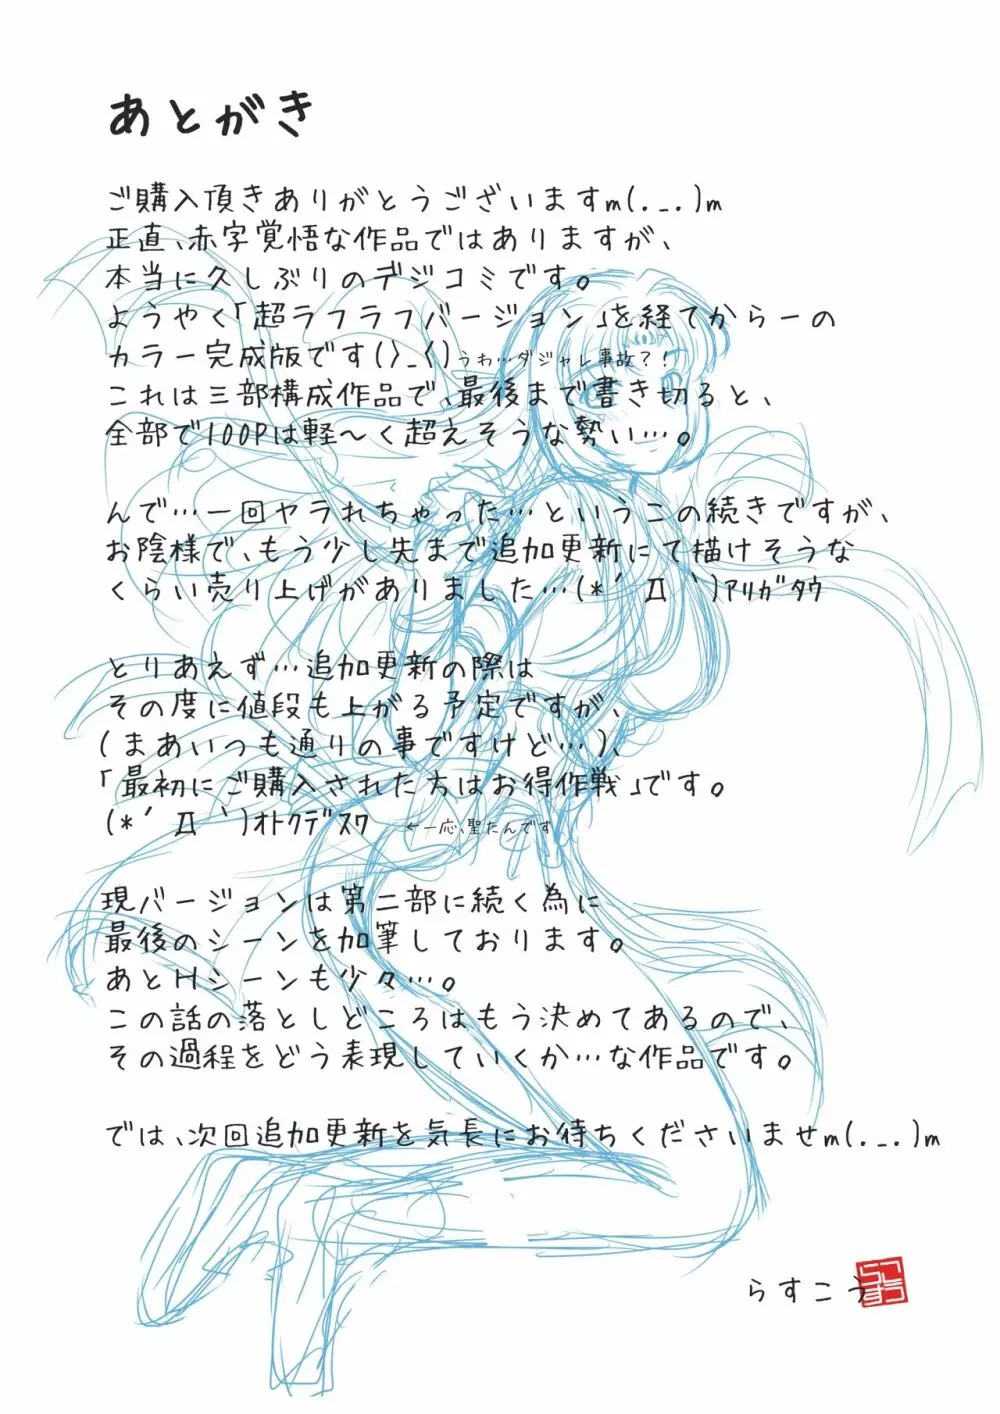 あとがき
ご購入頂きありがとうございますm(._.)m
正直、赤字覚悟な作品ではありますが、
本当に久しぶりのデジコミです。
ようやく「超ラフラフバージョン」を経てからーの
カラー完成版です(〉_〈)うわ…ダジャレ事故?!
これは三部構成作品で、最後まで書き切ると、
全部で100Pは軽~く超えそうな勢い…。
んで…一回ヤラれちゃった…というこの続きですが、
お陰様で、もう少し先まで追加更新にて描けそうな
くらい売り上げがありました…(*´Д`)ｱﾘｶﾞﾀｳ
とりあえず…追加更新の際は
その度に値段も上がる予定ですが、
(まあいつも通りの事ですけど…)、
「最初にご購入された方はお得作戦」です。
(*´Д`)ｵﾄｸﾃﾞｽﾜ ←一応、聖たんです
現バージョンは第二部に続く為に
最後のシーンを加筆しております。
あとHシーンも少々…。
この話の落としどころはもう決めてあるので、
その過程をどう表現していくか…な作品です。
では、次回追加更新を気長にお待ちくださいませm(._.)m
らすこう